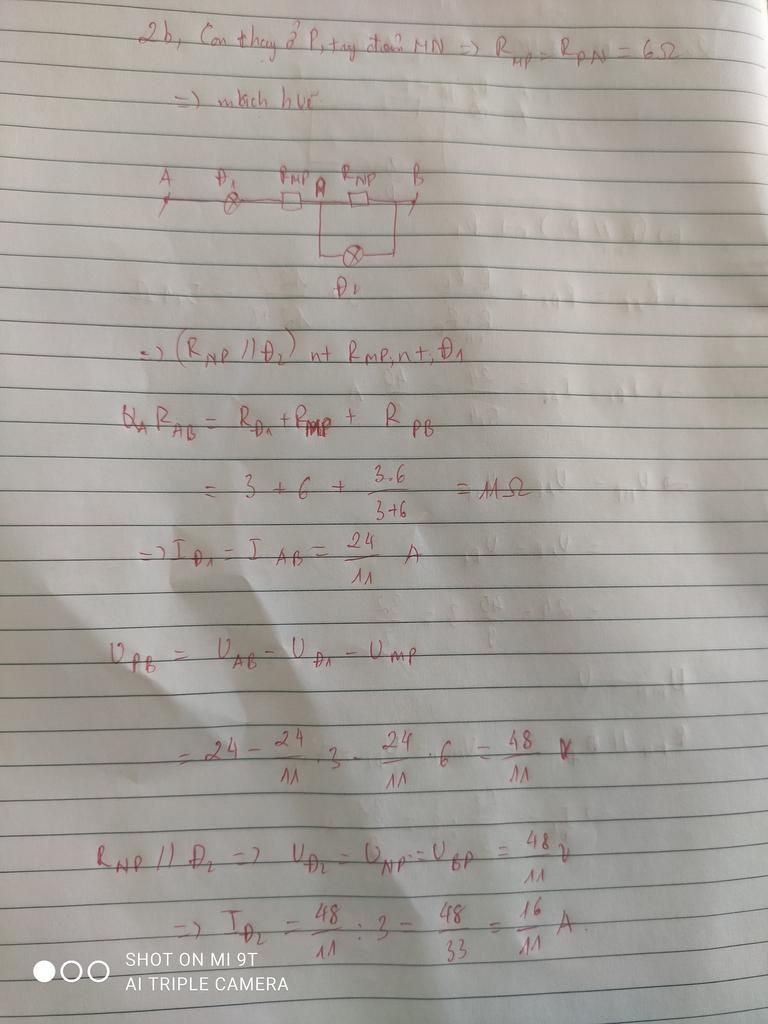 2b, Con chạy ở P, trung điểm MN => R_MP = R_PN = 6Ω
=> mạch h vẽ
A Đ1 R_MP R_NP B
Đ2
=> (R_NP // Đ2) nt R_MP nt Đ1
R_AB = R_Đ1 + R_MP + R_PB
= 3 + 6 + 3.6/(3+6) = 11Ω
=> I_Đ1 = I_AB = 24/11 A
U_PB = U_AB - U_Đ1 - U_MP
= 24 - 24/11 . 3 - 24/11 . 6 = 48/11 V
R_NP // Đ2 => U_Đ2 = U_NP = U_BP = 48/11 V
=> I_Đ2 = 48/11 : 3 = 48/33 = 16/11 A.
SHOT ON MI 9T
AI TRIPLE CAMERA